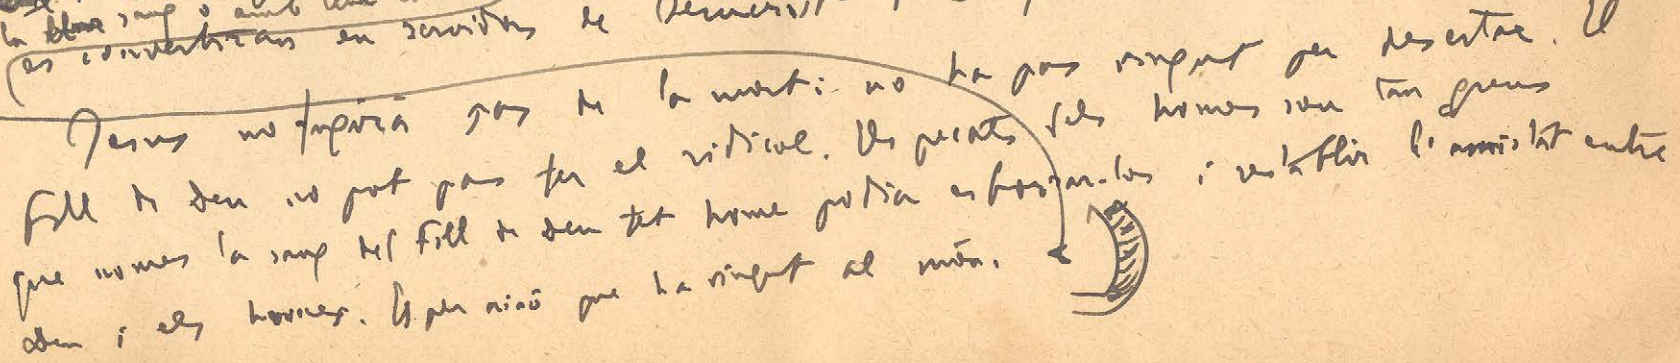 la sang o amb
es convertiran en servidors de
Jesus no fugirà pas de la mort: no ha pas vingut per desertar. El
Fill de Deu no pot pas fer el ridicul. Els pecats dels homes son tan greus
que nomes la sang del Fill de Deu fet home podia esborrar-los i restablir l'amistat entre
Deu i els homes. Es per això que ha vingut al món.